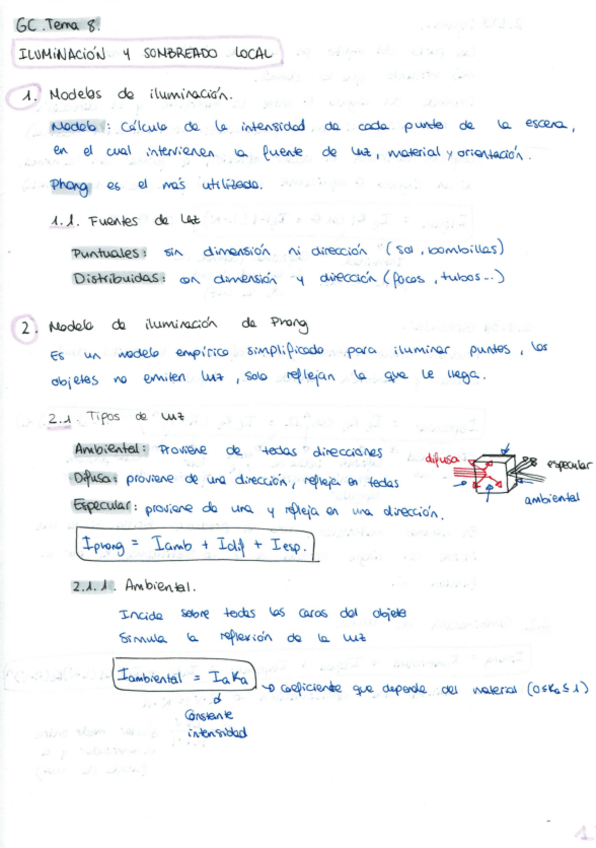 GC. Tema 8.
ILUMINACIÓN Y SOMBREADO LOCAL
1. Modelos de iluminación.
Modelo: Cálculo de la intensidad de cada punto de la escena,
en el cual intervienen la fuente de luz, material y orientación.
Phong es el más utilizado.
1.1. Fuentes de luz
Puntuales: sin dimensión ni dirección (sol, bombillas)
Distribuidas: con dimensión y dirección (focos, tubos...)
2. Modelo de iluminación de Phong
Es un modelo empírico simplificado para iluminar puntos, los
objetos no emiten luz, solo reflejan la que le llega.
2.1. Tipos de luz
Ambiental: Proviene de todas direcciones
Difusa: proviene de una dirección, refleja en todas
Especular: proviene de una y refleja en una dirección.
difusa
especular
ambiental
Iphong = Iamb + Idif + Iesp.
2.1.1. Ambiental.
Incide sobre todas las caras del objeto
Simula la reflexión de la luz
Iambiental = IaKa → coeficiente que depende del material (0≤Ka≤1)
Constante
intensidad
1